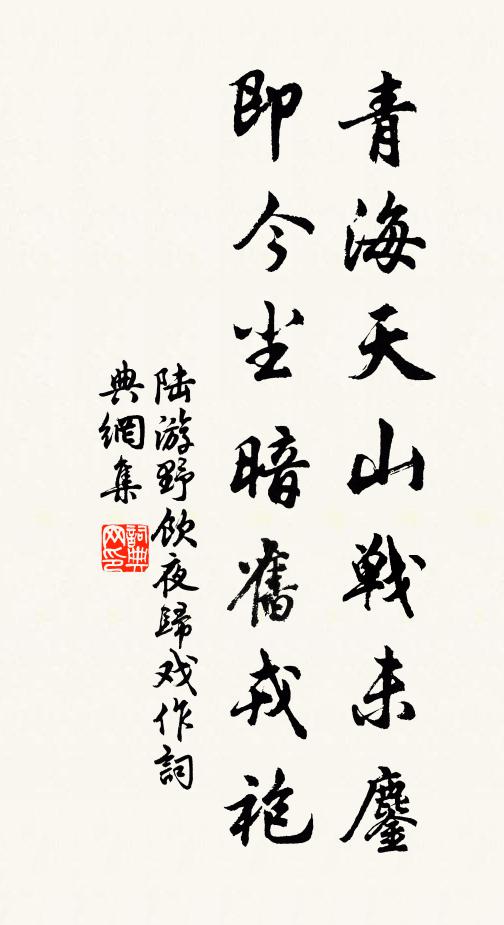 青海天山戰未鏖
即今尘暗舊戎袍
陆游野飲夜歸戏作詞
典網集
詞典
网印